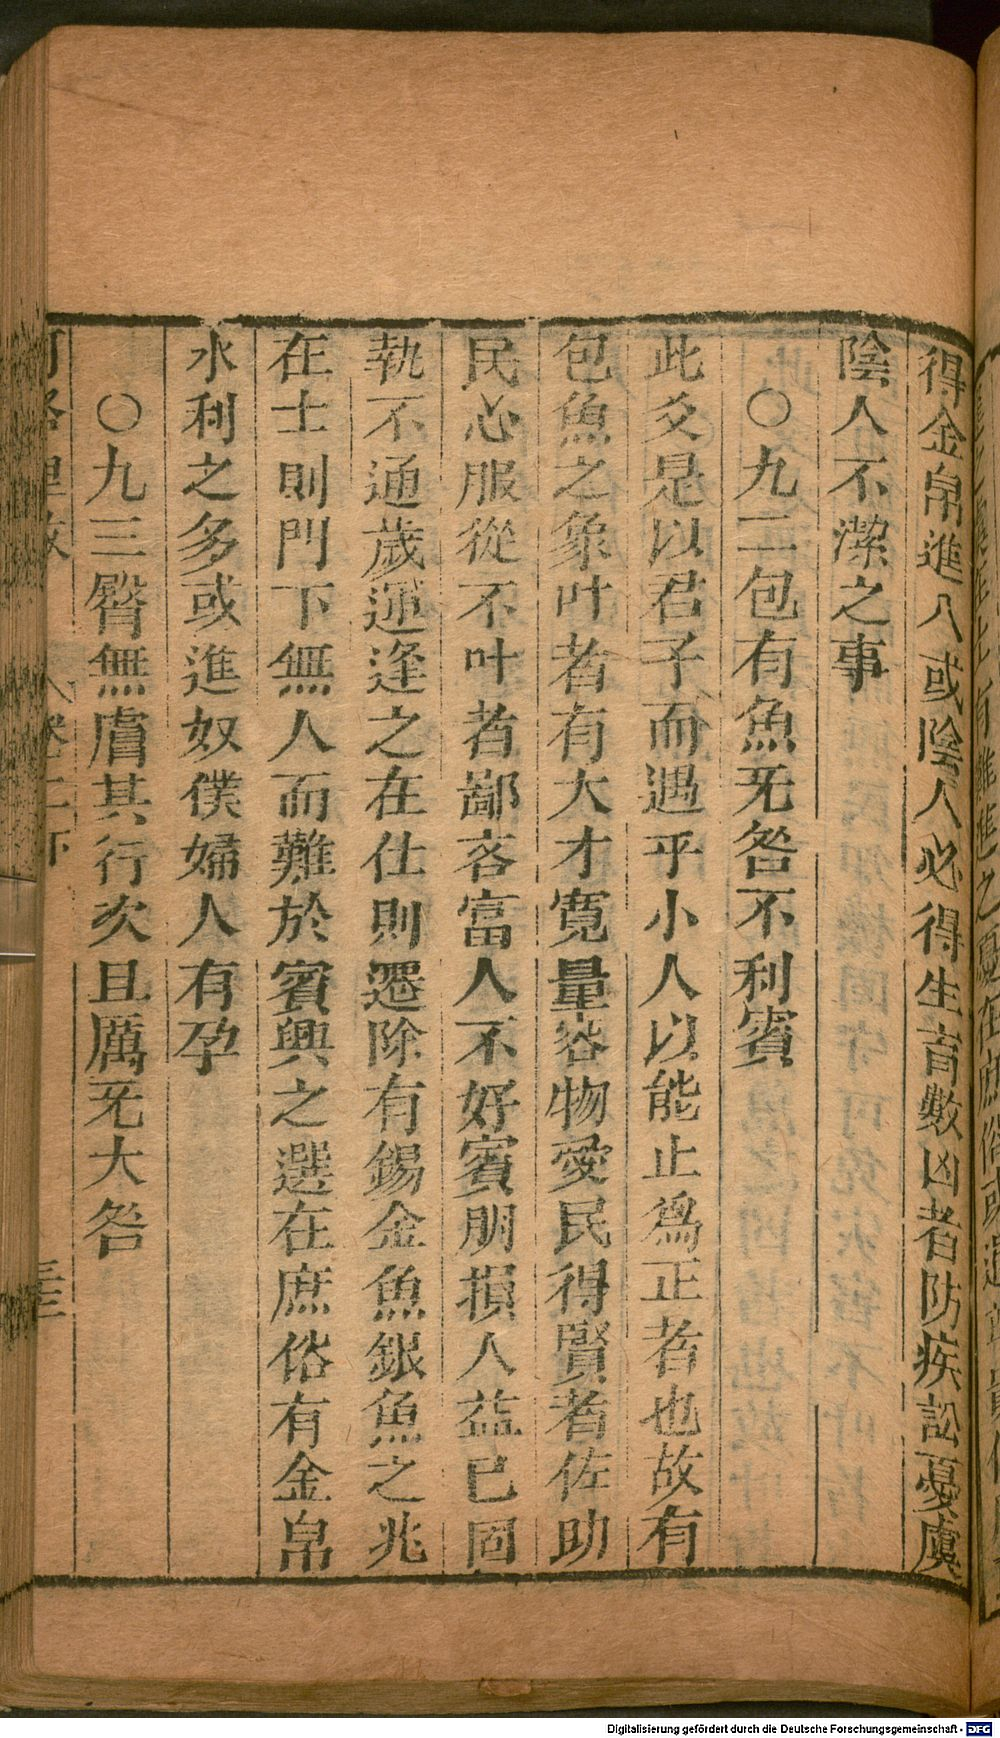 得金帛進八或陰人必得生育數凶者防疾訟憂虞
陰人不潔之事
○九二包有魚旡咎不利賓
此爻是以君子而遇乎小人以能止爲正者也故有
包魚之象叶者有大才寬量容物愛民得賢者佐助
民心服從不叶者鄙吝富人不好賓朋損人益已固
執不通歲運逢之在仕則遷除有錫金魚銀魚之兆
在士則門下無人而難於賓興之選在庶俗有金帛
水利之多或進奴僕婦人有孕
○九三臀無膚其行次且厲旡大咎
卷二下
Digitalisierung gefördert durch die Deutsche Forschungsgemeinschaft - DFG